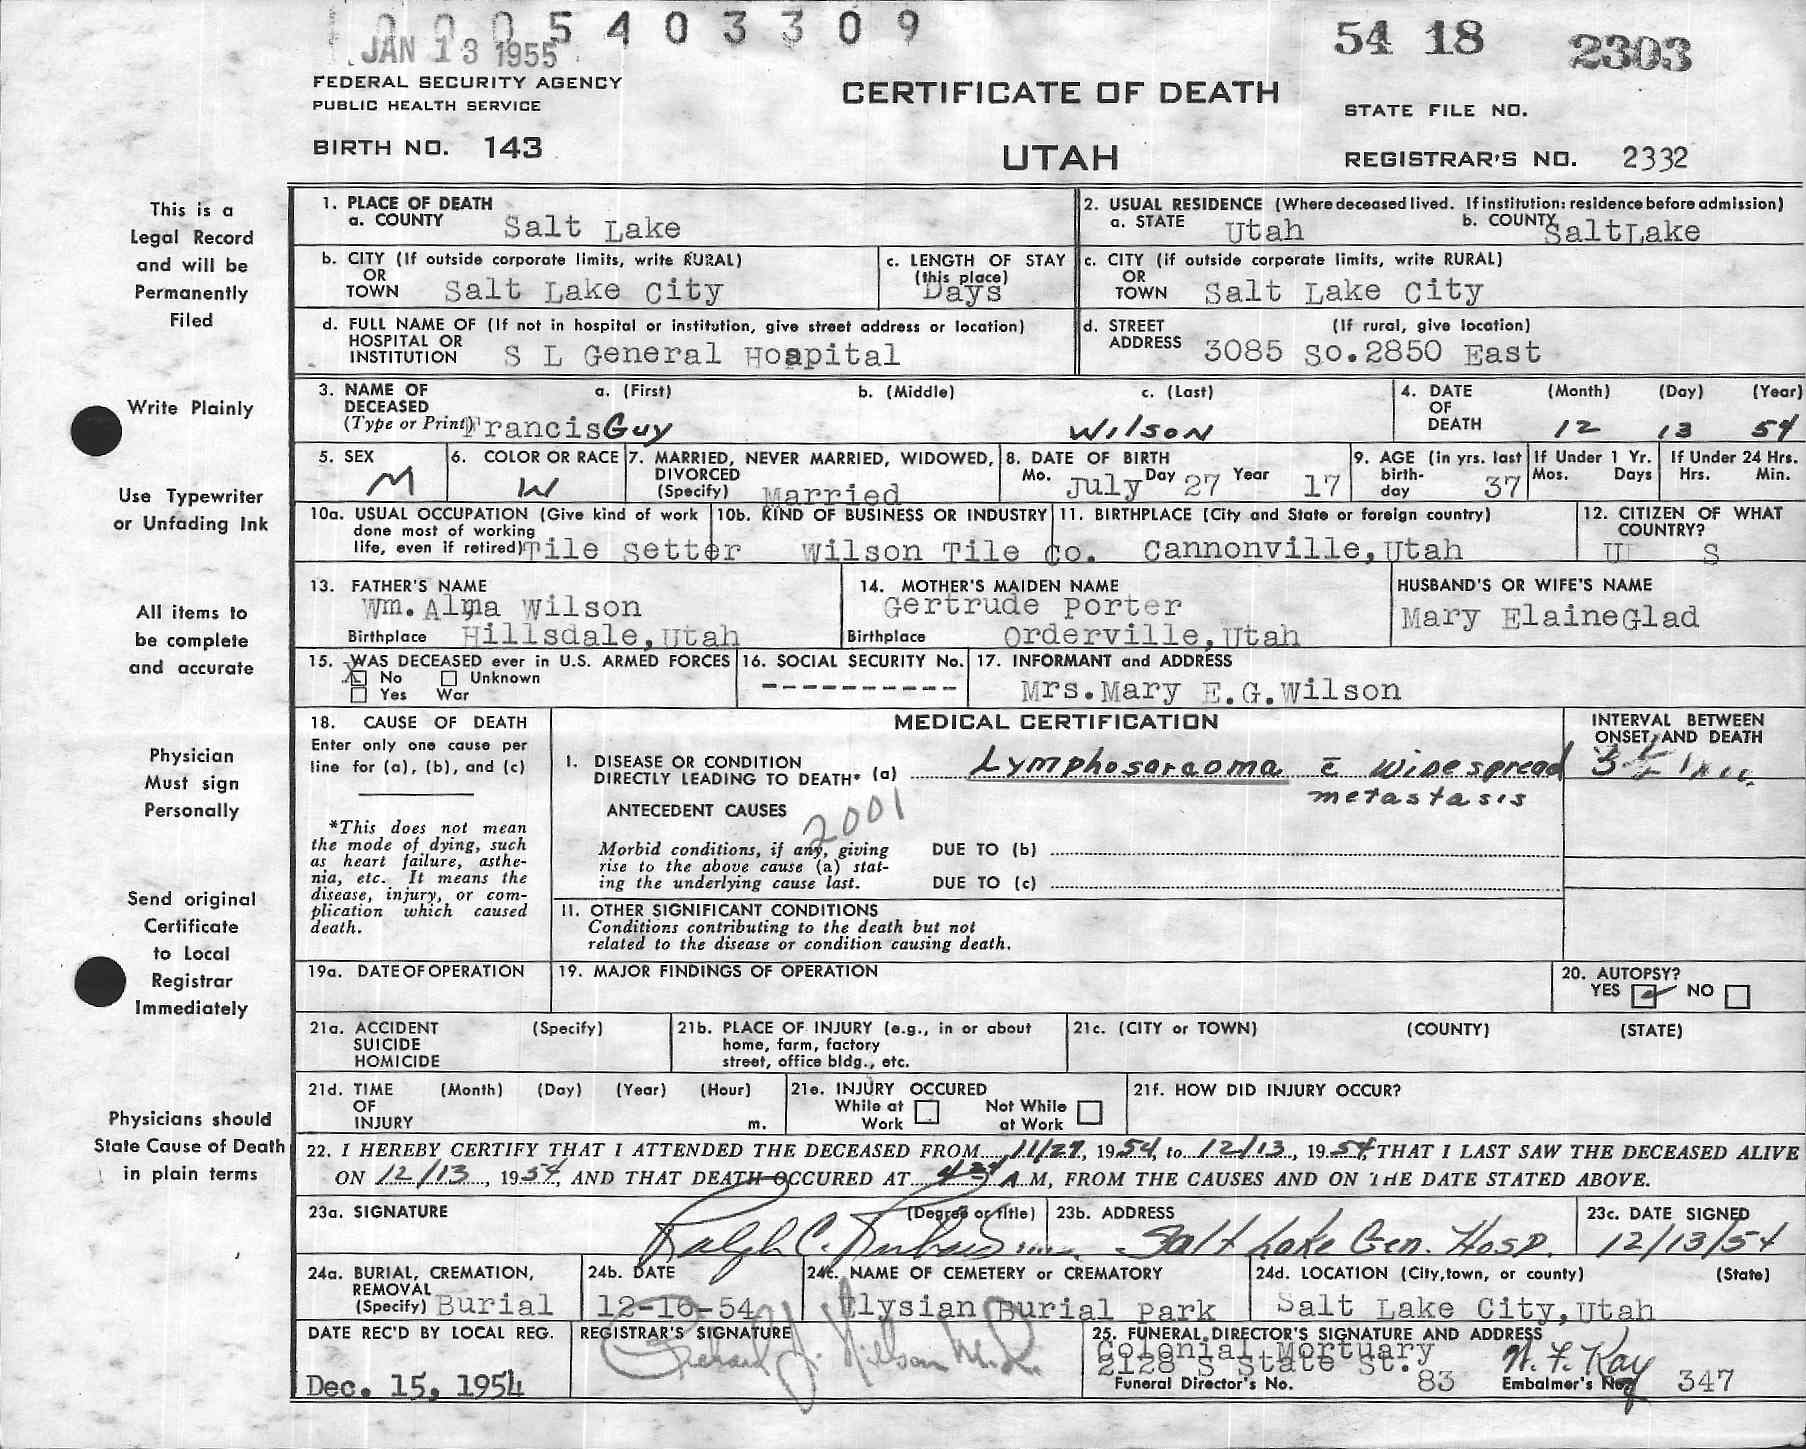 0005403309
JAN 13 1955
54 18 2303
FEDERAL SECURITY AGENCY
PUBLIC HEALTH SERVICE
CERTIFICATE OF DEATH
STATE FILE NO.
BIRTH NO. 143
UTAH
REGISTRAR'S NO. 2332
This is a
Legal Record
and will be
Permanently
Filed
Write Plainly
Use Typewriter
or Unfading Ink
All items to
be complete
and accurate
Physician
Must sign
Personally
Send original
Certificate
to Local
Registrar
Immediately
Physicians should
State Cause of Death
in plain terms
1. PLACE OF DEATH
a. COUNTY Salt Lake
2. USUAL RESIDENCE (Where deceased lived. If institution: residence before admission)
a. STATE Utah b. COUNTY SaltLake
b. CITY (If outside corporate limits, write RURAL)
OR
TOWN Salt Lake City
c. LENGTH OF STAY
(this place)
Days
c. CITY (if outside corporate limits, write RURAL)
OR
TOWN Salt Lake City
d. FULL NAME OF (If not in hospital or institution, give street address or location)
HOSPITAL OR
INSTITUTION S L General Hospital
d. STREET (If rural, give location)
ADDRESS 3085 So.2850 East
3. NAME OF a. (First) b. (Middle) c. (Last)
DECEASED
(Type or Print) Francis Guy Wilson
4. DATE (Month) (Day) (Year)
OF
DEATH 12 13 54
5. SEX
M
6. COLOR OR RACE
W
7. MARRIED, NEVER MARRIED, WIDOWED,
DIVORCED
(Specify) Married
8. DATE OF BIRTH
Mo. July Day 27 Year 17
9. AGE (in yrs. last
birth-
day 37
If Under 1 Yr.
Mos. Days
If Under 24 Hrs.
Hrs. Min.
10a. USUAL OCCUPATION (Give kind of work
done most of working
life, even if retired) Tile Setter
10b. KIND OF BUSINESS OR INDUSTRY
Wilson Tile Co.
11. BIRTHPLACE (City and State or foreign country)
Cannonville, Utah
12. CITIZEN OF WHAT
COUNTRY?
U S
13. FATHER'S NAME
Wm. Alma Wilson
Birthplace Hillsdale, Utah
14. MOTHER'S MAIDEN NAME
Gertrude Porter
Birthplace Orderville, Utah
HUSBAND'S OR WIFE'S NAME
Mary ElaineGlad
15. WAS DECEASED ever in U.S. ARMED FORCES
X No Unknown
Yes War
16. SOCIAL SECURITY No.
----------
17. INFORMANT and ADDRESS
Mrs.Mary E.G.Wilson
18. CAUSE OF DEATH
Enter only one cause per
line for (a), (b), and (c)
*This does not mean
the mode of dying, such
as heart failure, asthe-
nia, etc. It means the
disease, injury, or com-
plication which caused
death.
MEDICAL CERTIFICATION
INTERVAL BETWEEN
ONSET AND DEATH
I. DISEASE OR CONDITION
DIRECTLY LEADING TO DEATH* (a) Lymphosarcoma c̄ widespread
metastasis
ANTECEDENT CAUSES
2001
Morbid conditions, if any, giving
rise to the above cause (a) stat-
ing the underlying cause last.
DUE TO (b)
DUE TO (c)
II. OTHER SIGNIFICANT CONDITIONS
Conditions contributing to the death but not
related to the disease or condition causing death.
19a. DATE OF OPERATION
19. MAJOR FINDINGS OF OPERATION
20. AUTOPSY?
YES ✓ NO
21a. ACCIDENT (Specify)
SUICIDE
HOMICIDE
21b. PLACE OF INJURY (e.g., in or about
home, farm, factory
street, office bldg., etc.
21c. (CITY or TOWN) (COUNTY) (STATE)
21d. TIME (Month) (Day) (Year) (Hour)
OF
INJURY m.
21e. INJURY OCCURED
While at Work Not While at Work
21f. HOW DID INJURY OCCUR?
22. I HEREBY CERTIFY THAT I ATTENDED THE DECEASED FROM 11/27, 1954, to 12/13, 1954, THAT I LAST SAW THE DECEASED ALIVE
ON 12/13, 1954, AND THAT DEATH OCCURED AT A M, FROM THE CAUSES AND ON THE DATE STATED ABOVE.
23a. SIGNATURE (Degree or title)
Ralph C.
23b. ADDRESS
Salt Lake Gen. Hosp.
23c. DATE SIGNED
12/13/54
24a. BURIAL, CREMATION,
REMOVAL
(Specify) Burial
24b. DATE
12-16-54
24c. NAME OF CEMETERY or CREMATORY
Elysian Burial Park
24d. LOCATION (City, town, or county) (State)
Salt Lake City, Utah
DATE REC'D BY LOCAL REG.
Dec. 15, 1954
REGISTRAR'S SIGNATURE
25. FUNERAL DIRECTOR'S SIGNATURE AND ADDRESS
Colonial Mortuary
2128 S State St. W. F. Kay
Funeral Director's No. 83 Embalmer's No. 347